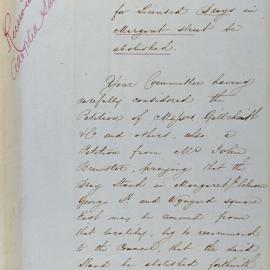 for Licensed Drays in
Margaret street be
abolished.
Your Committee having
carefully considered the
Petition of Messrs Gilchrist
&C and others, also a
Petition from Mr John
Brewster, praying that the
Dray Stand in Margaret St between
George St and Wynyard square
East may be removed from
that locality, beg to recommend
to the Council, that the said
Stand be abolished forthwith